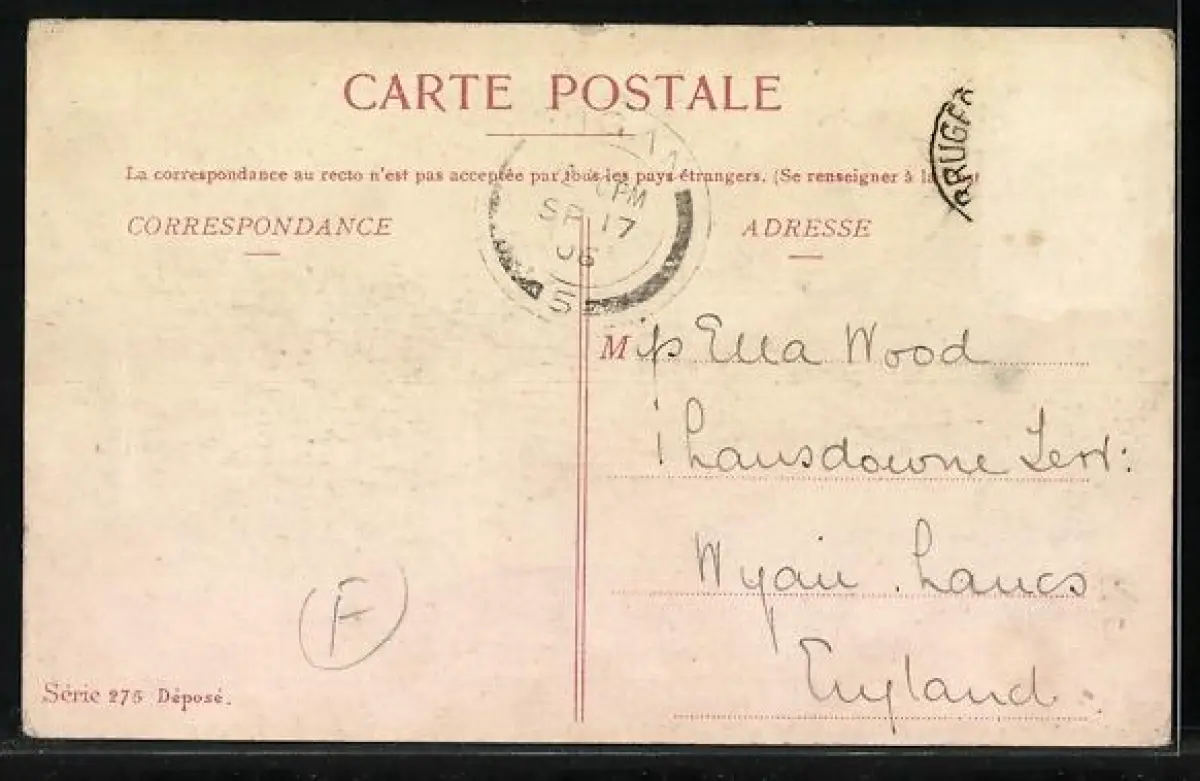 CARTE POSTALE
La correspondance au recto n'est pas acceptée par tous les pays étrangers. (Se renseigner à la
CORRESPONDANCE
ADRESSE
PM
SP 17
06
BRUGES
Miss Ella Wood
1 Lansdowne Terr:
Lancs
England.
F
Série 275 Déposé.